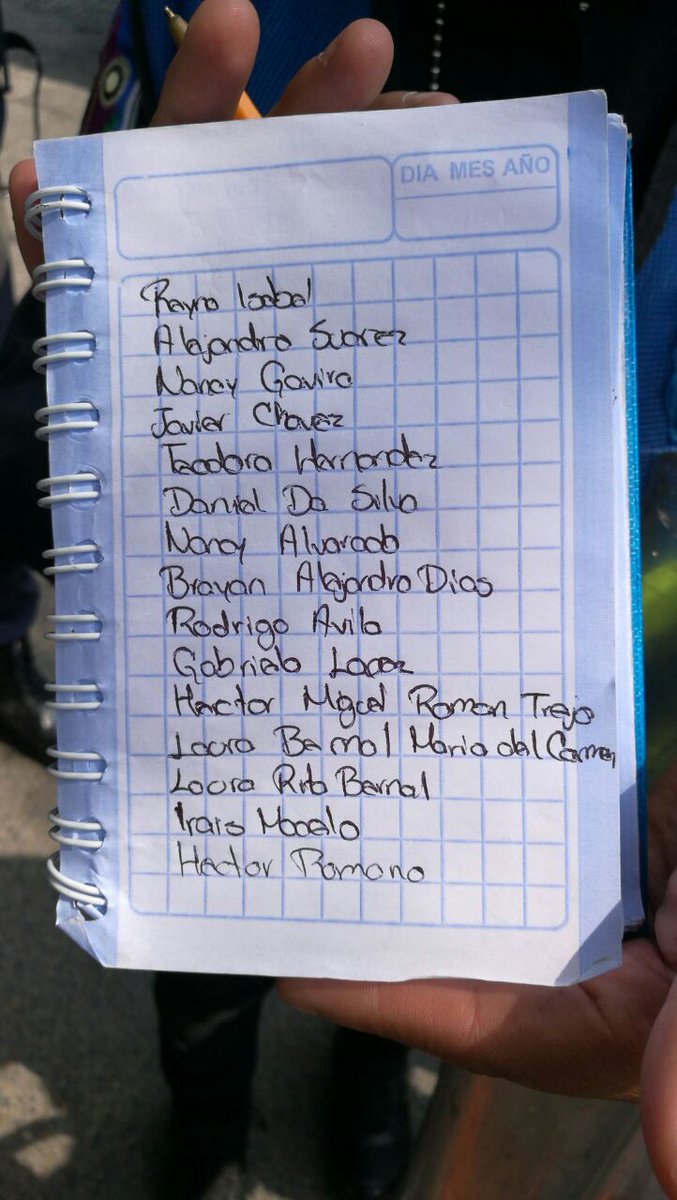 DIA MES AÑO
Reyna Isabel
Alejandro Suarez
Nancy Gavira
Javier Chavez
Teodora Hernandez
Daniel Da Silva
Nancy Alvarado
Brayan Alejandro Dias
Rodrigo Avila
Gabriela Lopez
Hector Migel Roman Trejo
Laura Bernal Maria del Carmen
Laura Rita Bernal
Irais
Hector Romano